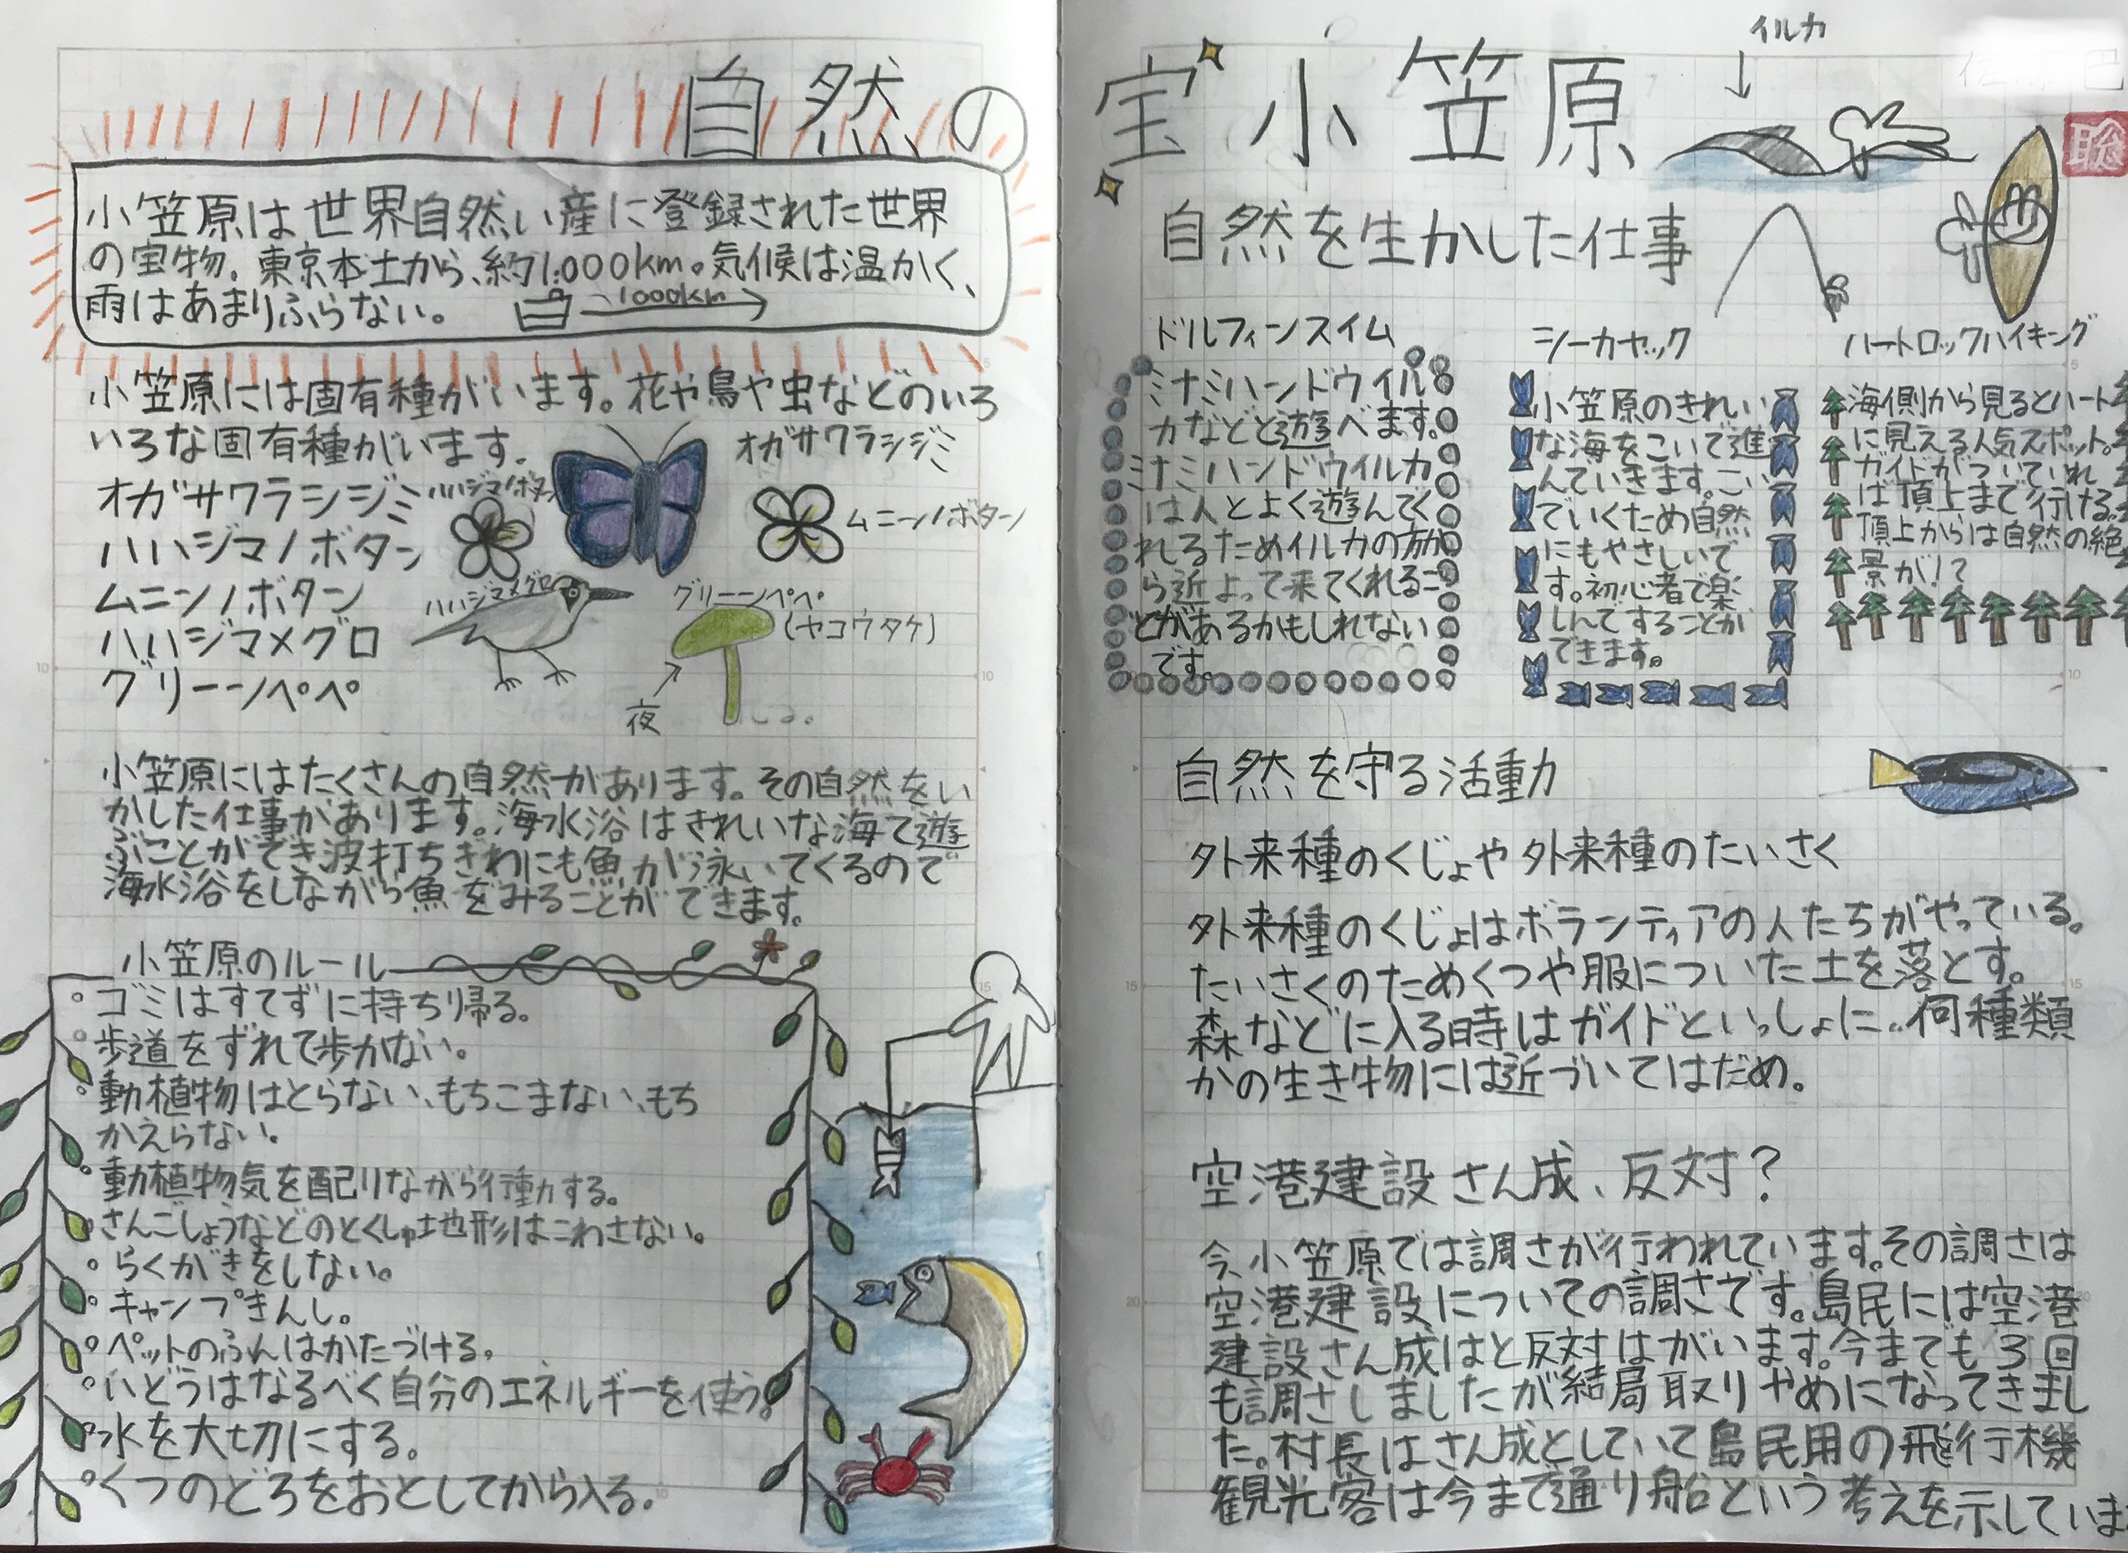 自然の宝小笠原
小笠原は世界自然い産に登録された世界
の宝物。東京本土から、約1.000km。気候は温かく、
雨はあまりふらない。
1000km
小笠原には固有種がいます。花や鳥や虫などのいろ
いろな固有種がいます。
オガサワラシジミ
ハハジマノボタン
ムニンノボタン
ハハジマメグロ
グリーンペペ
オガサワラシジミ
ハハジマノボタン
ムニンノボタン
ハハジマメグロ
グリーンペペ
(ヤコウタケ)
夜
小笠原にはたくさんの自然があります。その自然をい
かした仕事があります。海水浴はきれいな海で遊
ぶことができ波打ちぎわにも魚が泳いでくるので
海水浴をしながら魚をみることができます。
小笠原のルール
○ゴミはすてずに持ち帰る。
○歩道をずれて歩かない。
○動植物はとらない、もちこまない、もち
かえらない。
○動植物気を配りながら行動する。
○さんごしょうなどのとくしゅ地形はこわさない。
○らくがきをしない。
○キャンプきんし。
○ペットのふんはかたづける。
○いどうはなるべく自分のエネルギーを使う。
○水を大切にする。
○くつのどろをおとしてから入る。
イルカ
聡
自然を生かした仕事
ドルフィンスイム
ミナミハンドウイル
カなどと遊べます。
ミナミハンドウイルカ
は人とよく遊んでく
れるためイルカの方か
ら近よって来てくれるこ
とがあるかもしれない
です。
シーカヤック
小笠原のきれい
な海をこいで進
んでいきます。こい
でいくため自然
にもやさしいで
す。初心者で楽
しんですることが
できます。
ハートロックハイキング
海側から見るとハート
に見える人気スポット。
ガイドがついていれ
ば頂上まで行ける。
頂上からは自然の絶
景が!?
自然を守る活動
外来種のくじょや外来種のたいさく
外来種のくじょはボランティアの人たちがやっている。
たいさくのためくつや服についた土を落とす。
森などに入る時はガイドといっしょに。何種類
かの生き物には近づいてはだめ。
空港建設さん成、反対?
今、小笠原では調さが行われています。その調さは
空港建設についての調さです。島民には空港
建設さん成はと反対はがいます。今までも3回
も調さしましたが結局取りやめになってきまし
た。村長はさん成としていて島民用の飛行機
観光客は今まで通り船という考えを示していま